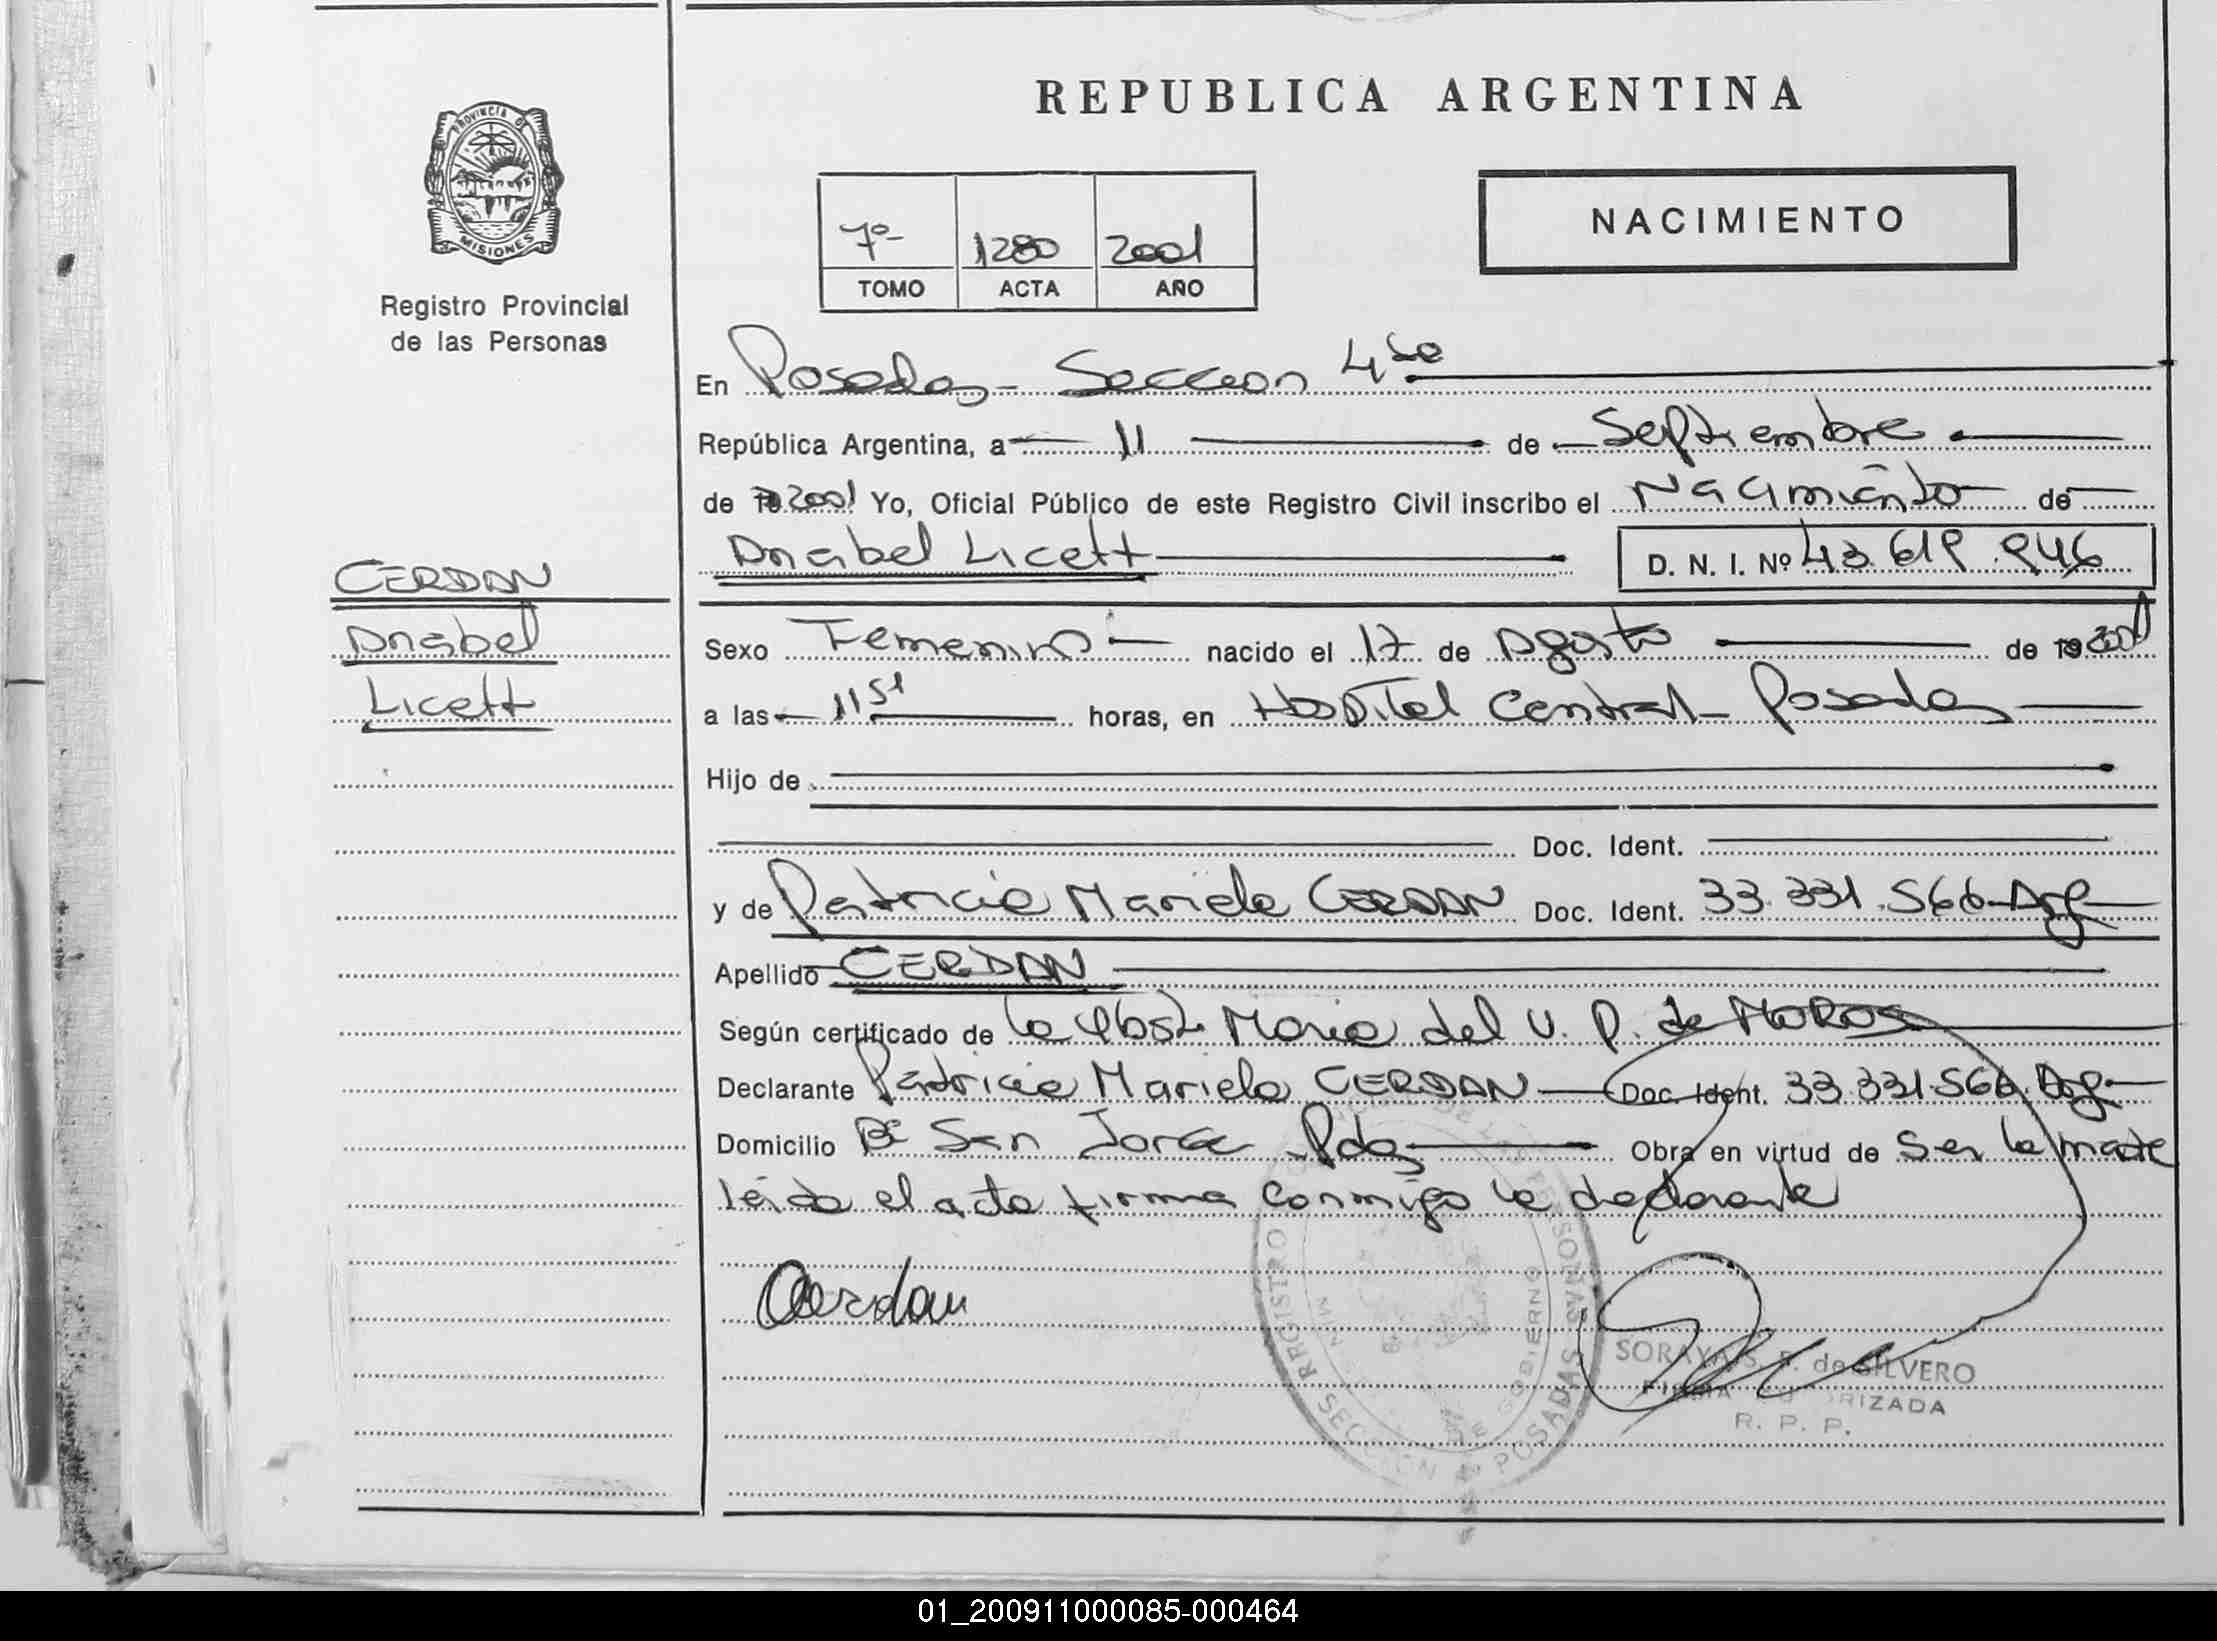 REPUBLICA ARGENTINA
PROVINCIA DE
MISIONES
Registro Provincial
de las Personas
NACIMIENTO
7º 1280 2001
TOMO ACTA AÑO
En Posadas - Seccion 4ta
República Argentina, a 11 de Septiembre
de 2001 Yo, Oficial Público de este Registro Civil inscribo el Nacimiento de
Anabel Licett D. N. I. Nº 43.619.946
CERDAN
Anabel
Licett
Sexo Femenino nacido el 17 de Agosto de 2001
a las 11 51 horas, en Hospital Central - Posadas
Hijo de
Doc. Ident.
y de Patricia Mariela CERDAN Doc. Ident. 33.331.566 Arg
Apellido CERDAN
Según certificado de la Obst. Maria del V. P. de MOROS
Declarante Patricia Mariela CERDAN Doc. Ident. 33.331.566 Arg
Domicilio Bº San Jorge Pdas Obra en virtud de ser la madre
leida el acta firma conmigo la declarante
Cerdan
REGISTRO DE LAS PERSONAS
GOBIERNO
SECCION 4ª POSADAS
SORAYA S. de SILVERO
FIRMA AUTORIZADA
R. P. P.
01_200911000085-000464